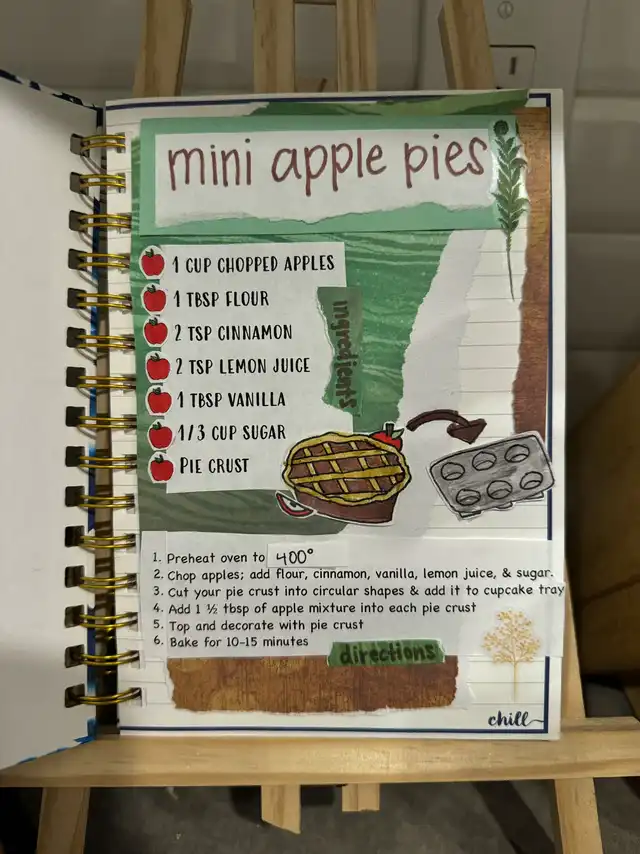 mini apple pies
1 CUP CHOPPED APPLES
1 TBSP FLOUR
2 TSP CINNAMON
2 TSP LEMON JUICE
1 TBSP VANILLA
1/3 CUP SUGAR
PIE CRUST
ingredients
1. Preheat oven to 400°
2. Chop apples; add flour, cinnamon, vanilla, lemon juice, & sugar.
3. Cut your pie crust into circular shapes & add it to cupcake tray
4. Add 1 ½ tbsp of apple mixture into each pie crust
5. Top and decorate with pie crust
6. Bake for 10-15 minutes
directions
chill